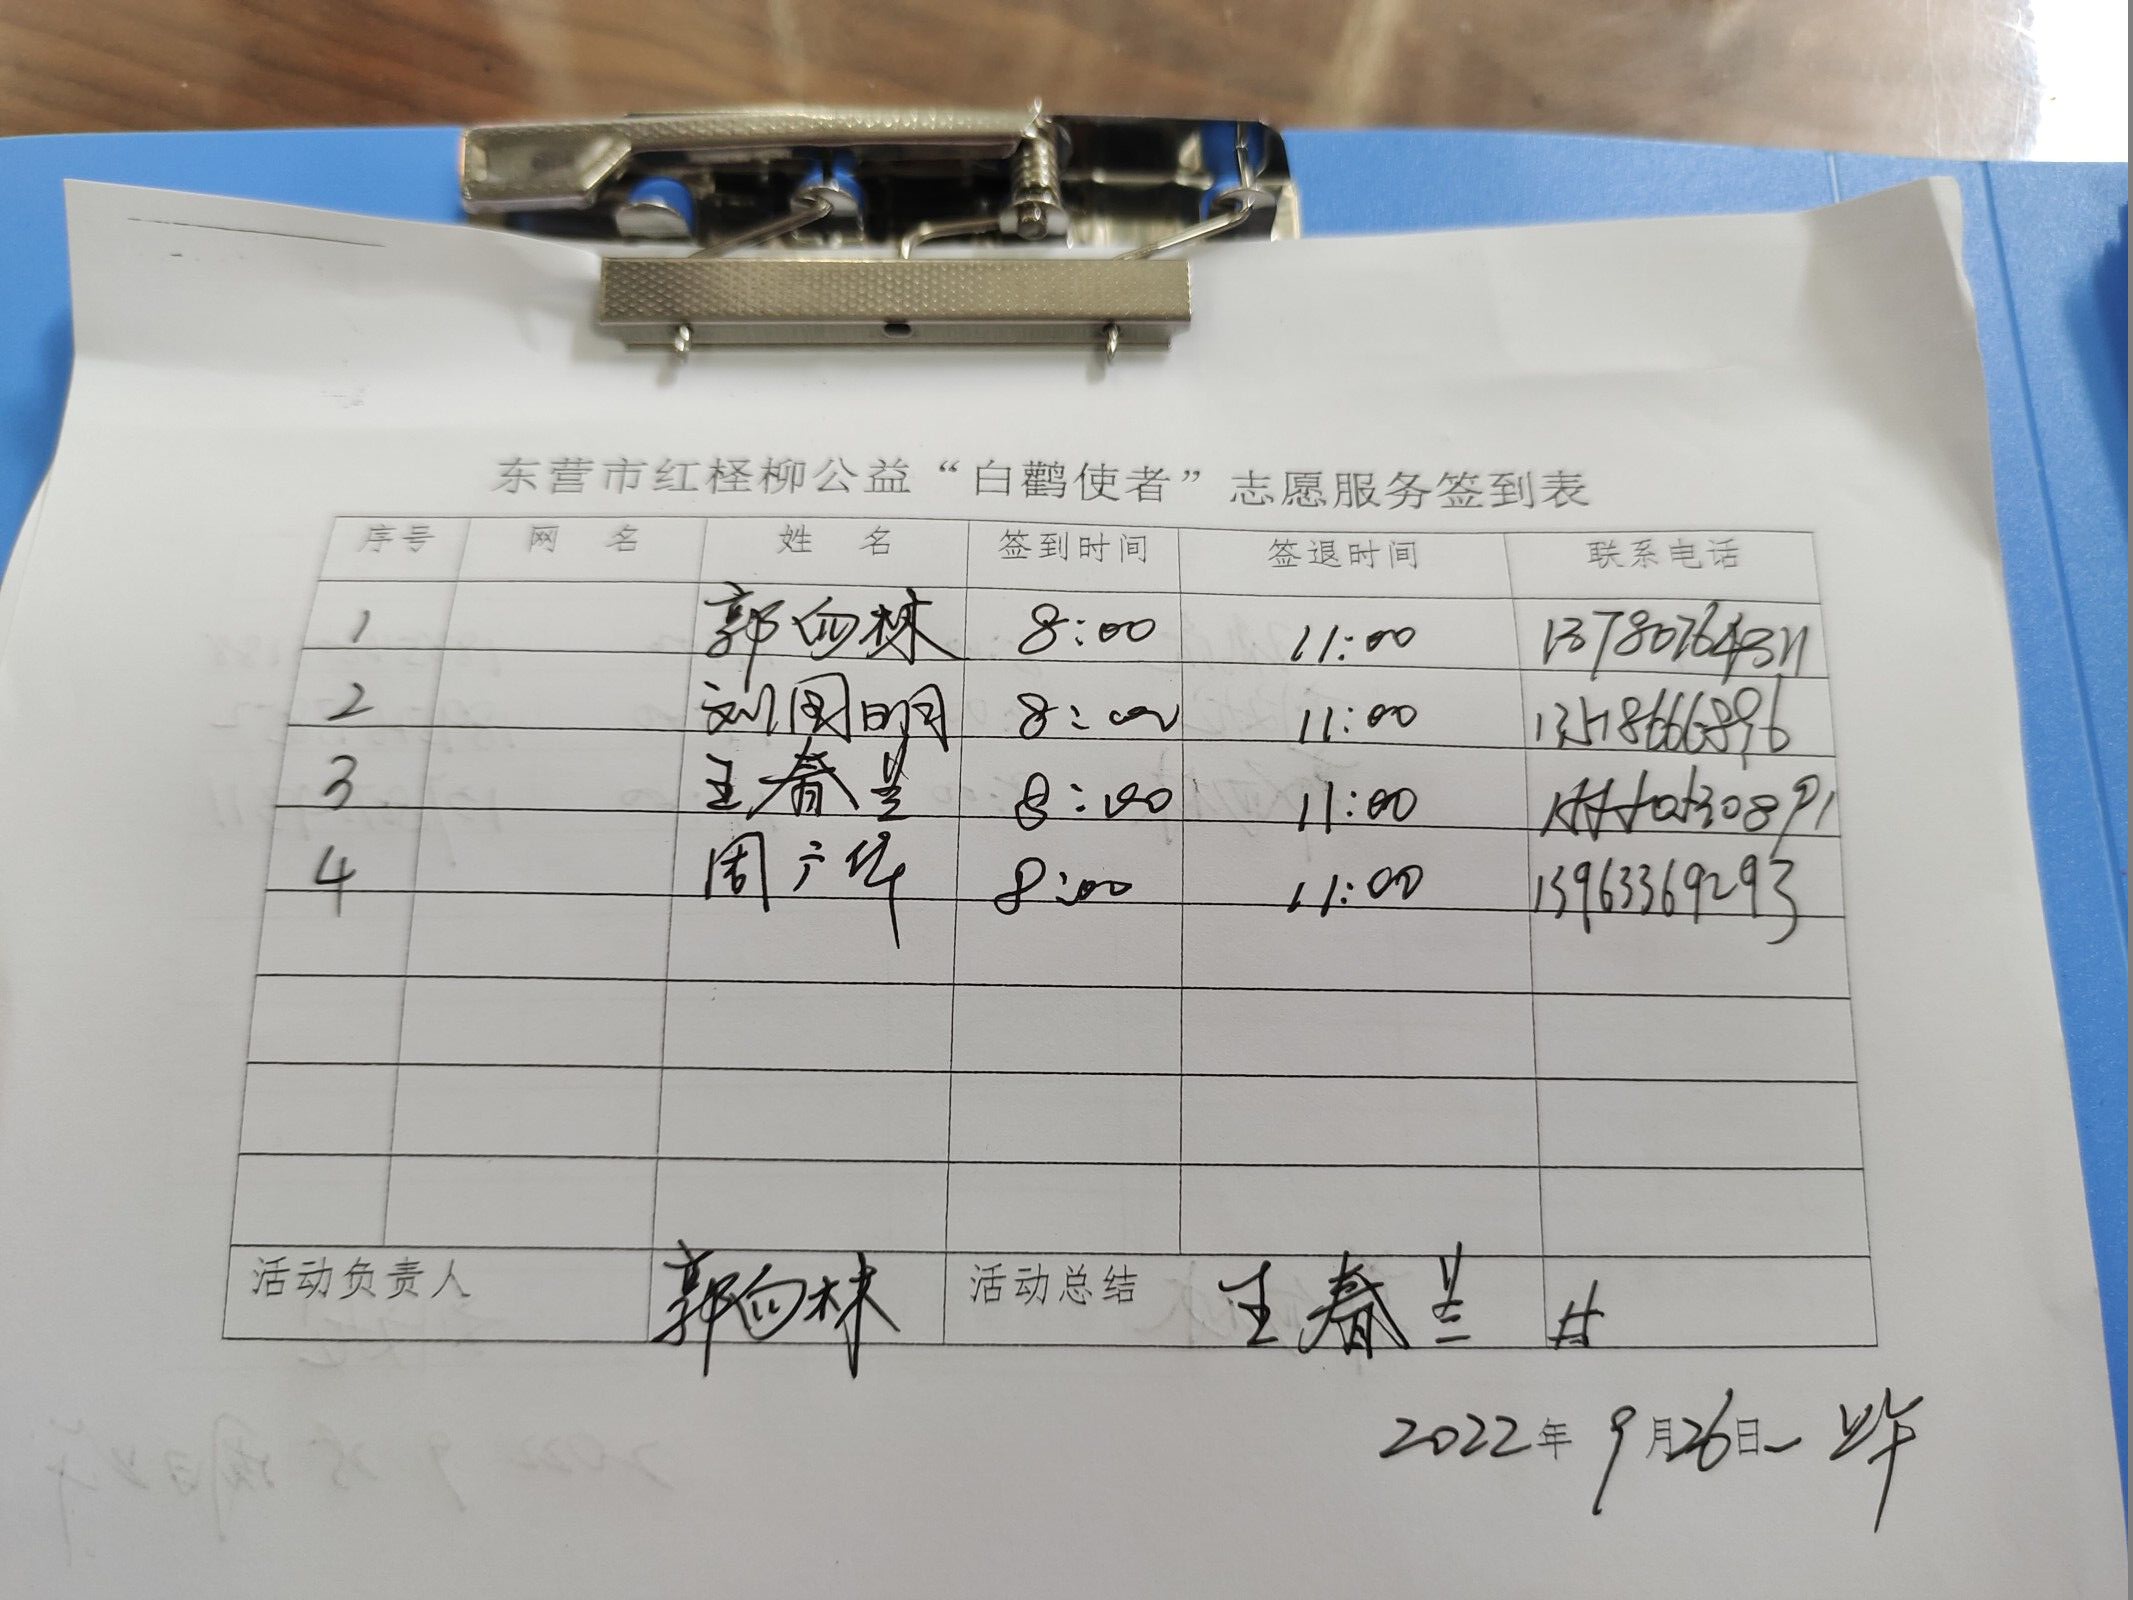 东营市红柽柳公益“白鹳使者”志愿服务签到表
序号 网 名 姓 名 签到时间 签退时间 联系电话
1 郭向林 8:00 11:00 13780764311
2 刘国明 8:00 11:00
3 王春兰 8:00 11:00
4 周广华 8:00 11:00 13963369293
活动负责人 郭向林 活动总结 王春兰
2022年9月26日